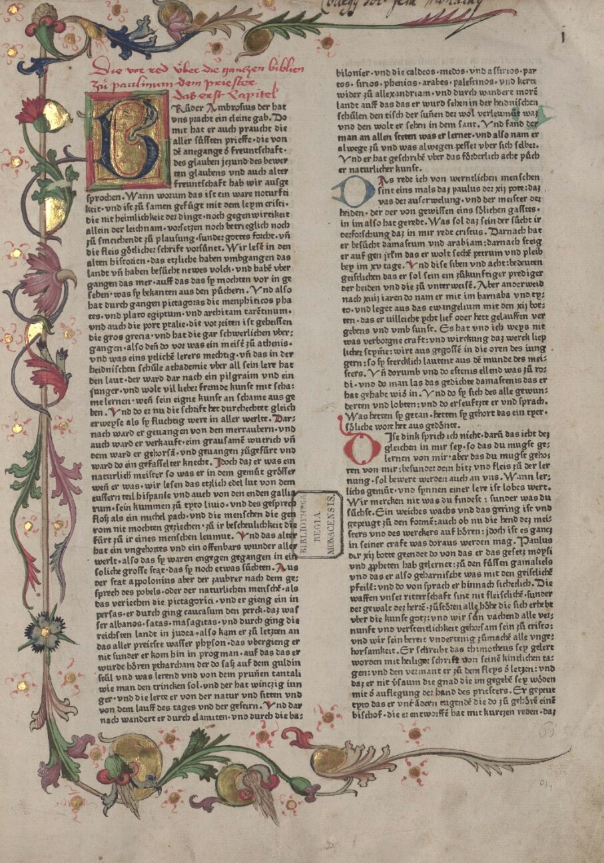 Die vor red über die ganczen biblien
zů paulinum dem priester
das erst Capitel
BRůder Ambrosius der hat
vns pracht ein cleine gab. Do
mit hat er auch prauche die
aller süssten prieffe · die von
dē anegange ď freuntschafft ·
des glauben jeʒund des bewer
ten glaubens vnd auch alter
freuntschafft hab wir ausge
sprochen. Wann worum das ist ein ware
keit · vnd ist zů samen gefügt mit dem
die nit heimlikeit der dinge · noch gegenwirtikeit
allein der leichnam · vorseczen noch betreglich noch
vnd fleis gőtlicher schrift vorsünet. Wir lesē in den
alten historien · das etzliche haben vmbgangen das
lande vn̄ haben besůcht newes volck · vnd habē vber
gangen das mer · auff das das sy mochten vor in ge
sehen · was sy bekanten aus den půchern. Vnd also
hat durch gangen pictagoras die menphincos pha
tes · vnd plato egiptum · vnd architam tarentinum ·
vnd auch die port ytalie · die vor zeiten ist geheissen
die gros grecia · vnd hat die gar schwerlichen vber
gangen · also den do vor was ein meist zů athenis ·
vnd was eins lerers mechtig · vn̄ das in der
heidnischen schůle achademie vber all sein lere hat
den laut · der ward dar nach ein pilgraim vnd ein
junger · vnd wolt vil lieber fremde kunst mit scha
me lernen · wen sein eigne kunst an schame aus ge
ben. Vnd do er nu die schrift het durchechtet gleich
erweyse als sy fluchtig wert in aller werlt. Dar
nach ward er geuangen von den merraubern · vnd
auch ward er verkauft · ein grausamē wutrich vn̄
dem ward er gehorsā · vnd
ward do ein gefasselter knecht. Idoch daʒ er was ein
naturlich meister so was er in dem gemůt grősser
weder er was · wir lesen das etzlich edel lut von dem
eussern teil hispanie vnd auch von den enden gallia
rum · sein kummen zů tyto liuio · vnd des gesprech
floss als ein milch pach · vnd die menschen die gen
rom nit mochten geziechen · zů ir bescheulichkeit die
fürt zů ir eines menschen leumut. Vnd das alter
hat ein vngehortes vnd ein offenbars wunder aller
werlt · also das sy waren eingegangen in ein
soliche grosse stat · das sy noch etwas sůchten. Aus
der stat appolonius aber der zaubrer nach dem ge
sprech des pobels · oder der naturlichen menschē · als
das verjechen die pictagorici · vnd er gieng ein in
persas · er durch gieng caucasum den perck · daʒ was
ser albanos · satas · masagetas · vnd durch ging die
reichsten landt in judea · also kam er zů letzten an
das aller preitste wasser physon · das vbergieng er
mit sunder er kom hin in pragman · auf das das er
wurde hőren yetharcham der do sass auf dem guldin
stůl vnd was lerend vnd von dem prunnen tantali
wie man den trincken sol · vnd der hat winczig iun
ger · vnd die lerte er von der natur vnd sitten vnd
von dem lauff des tages vnd der gestirn. Vnd dar
nach wandert er durch elamiten · vnd durch die ba:
bilonier · vnd die caldeos · medos · vnd assirios · par
tos · sirios · phenias · arabes · palestinos · vnd keret
wider zů allexandriam · vnd durch wandert
landt auff das das er wurd sehen in der heidnischen
schůlen den tisch der sunnen
vnd den wolt er sehen in dem sant. Vnd fand der
man an allen steten was er lernet · vnd also nam er
alwege zů vnd was alwegen pesser vber sich selber.
Vnd er hat geschribē vber das achte půch
er naturlicher kunst.
WAs rede ich von werntlichen menschen
sint eins mals das paulus der xij pote: daʒ
vas der auserwelung · vnd der meister der
heiden · der do von gewissen eins sőlichen gastes ·
in im also hat gerede. Was sol das sein der sůcht ir
erforschung das in mir rede cristus. Darnach hat
er besůcht damascum vnd arabiam: darnach steig
er auf gen jherusalem das er wolt sechē petrum vnd pleib
bey im xv tage. Vnd dise siben vnd acht: bedeuten
geistlichen das er sol sein ein zůkunftiger prediger
der heiden vnd die zů vnterweisē. Aber anderweid
nach xiiij iaren do nam er mit im barnaba vnd tyt
to · vnd leget aus das ewangelium mit den xij botē ·
das er villeicht icht lief oder hett gelauffen ver
gebens vnd vmb sunst. Es hat vnd ich weys nit
was verborgne craft · vnd wirckung das werck lug
licher: wirt aus gegosse in die oren des iun
gern: so sy frechlich lautent aus dē munde des mei
sters. Vn̄ dorumb vnd do estenus ellend was zů ro
di · vnd do man las das gedichte damastenis das er
gehabt wid in. Vnd do sy sich des alle gewun
derten vnd lobten: vnd do erseufzet er vnd sprach.
Was hetten sy getan · hetten sy gehort das ein tyer ·
sőliche wort her aus gedőnet.
DIse dinck sprich ich nicht · darū das icht des
gleichen in mir sey · so das du mugst ge
lernen von mir · aber das du mugst gehő
ren von mir: besunder dein hitz vnd fleis zů der ler
nung · sol bewert werden auch an vns. Wann ler
liche gemüt · vnd synnen einer lere ist lobes wert.
Wir mercken nit was du findest: sunder was du
sůchst. Ein weiches wachs vnd das gering ist vnd
gepeugt zů dem formē: auch ob nu die hend des meis
sters vnd des werckers auf hőren: idoch ist es gantz
in seiner craft was dar aus werden mag. Paulus
der xij botte gerendet do von das er das gesetz moysi
vnd der ppheten hab gelernet: zů den füssen gamaliels
vnd das er also geharnischt was mit den geistlichē
pfeilē · vnd do von sprach er hinnach sicherlich. Die
waffen vnser ritterschaft sint nit fleischlich · sunder
der gewalt des herrē: zůstőrn alle hőhe die sich erhebt
vber die kunst gotz: vnd wir sein vachen alle ver
nunfft vnd verstentlichkeit gehorsam sein zů cristo:
vnd wir sein bereit vndertenig zůmachē alle vnge
horsamkeit. Er schreibt das thimotheus sey gelert
worden mit heiliger schrift von seinē kintlichen ta
gen: vnd den vermant er zů dem fleys ď leczen: vnd
daʒ er nit ősaum die gnad die im gegebē sey wőrdē
mit ď auflegung der hand des priesters. Er gepeut
tyto das er vnď andern tugenden die do zů gehőrt einē
bischof · die er entworffē hat mit kurczen reden · daʒ
BIBLIOTHECA
REGIA
MONACENSIS.
1